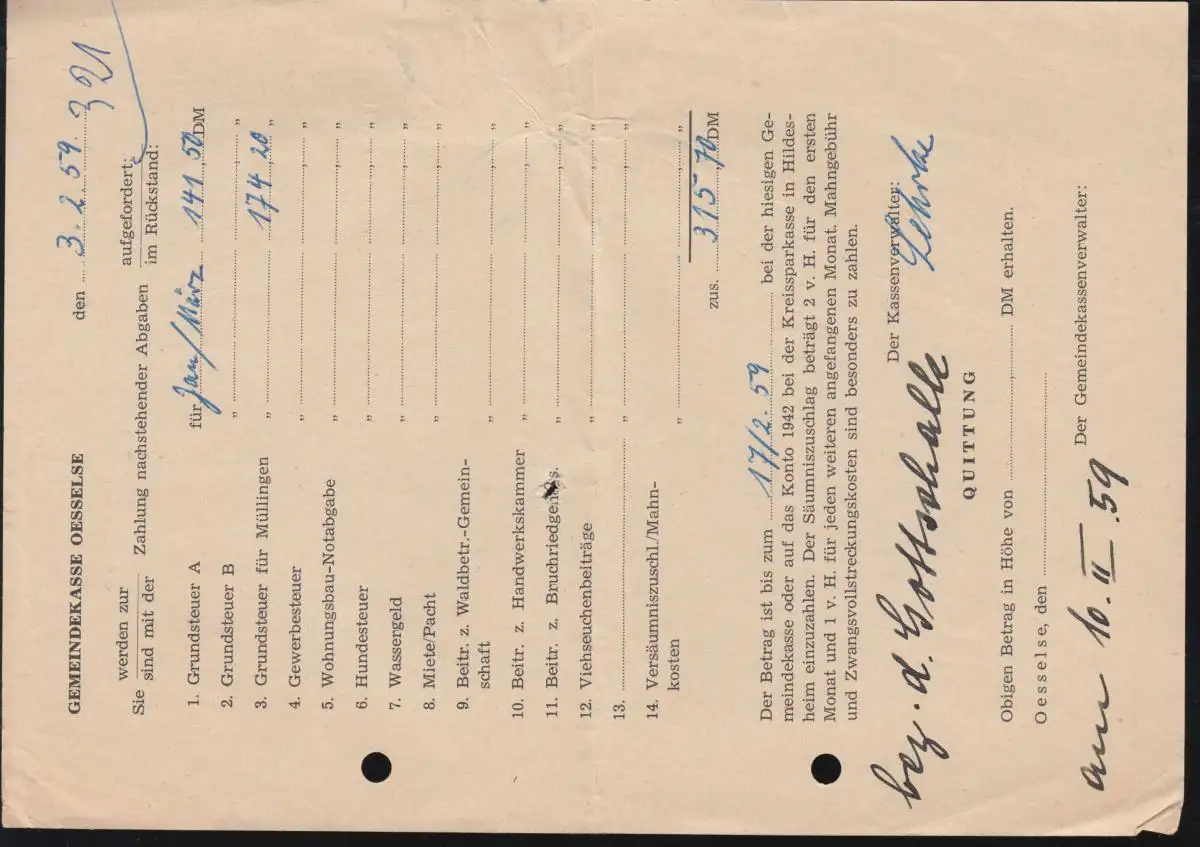 GEMEINDEKASSE OESSELSE den 3. 2. 59.
321
werden zur Zahlung nachstehender Abgaben aufgefordert:
Sie
sind mit der im Rückstand:
1. Grundsteuer A für Jan/März 141 50 DM
2. Grundsteuer B " , "
3. Grundsteuer für Müllingen " 174,20 "
4. Gewerbesteuer " , "
5. Wohnungsbau-Notabgabe " , "
6. Hundesteuer " , "
7. Wassergeld " , "
8. Miete/Pacht " , "
9. Beitr. z. Waldbetr.-Gemein-
schaft " , "
10. Beitr. z. Handwerkskammer " , "
11. Beitr. z. Bruchriedgenoss. " , "
12. Viehseuchenbeiträge " , "
13. " , "
14. Versäumniszuschl./Mahn-
kosten " , "
zus. 315,70 DM
Der Betrag ist bis zum 17/2. 59 bei der hiesigen Ge-
meindekasse oder auf das Konto 1942 bei der Kreissparkasse in Hildes-
heim einzuzahlen. Der Säumniszuschlag beträgt 2 v. H. für den ersten
Monat und 1 v. H. für jeden weiteren angefangenen Monat. Mahngebühr
und Zwangsvollstreckungskosten sind besonders zu zahlen.
Der Kassenverwalter:
bez. d.
QUITTUNG
Obigen Betrag in Höhe von , DM erhalten.
Oesselse, den
Der Gemeindekassenverwalter:
am 10. II. 59